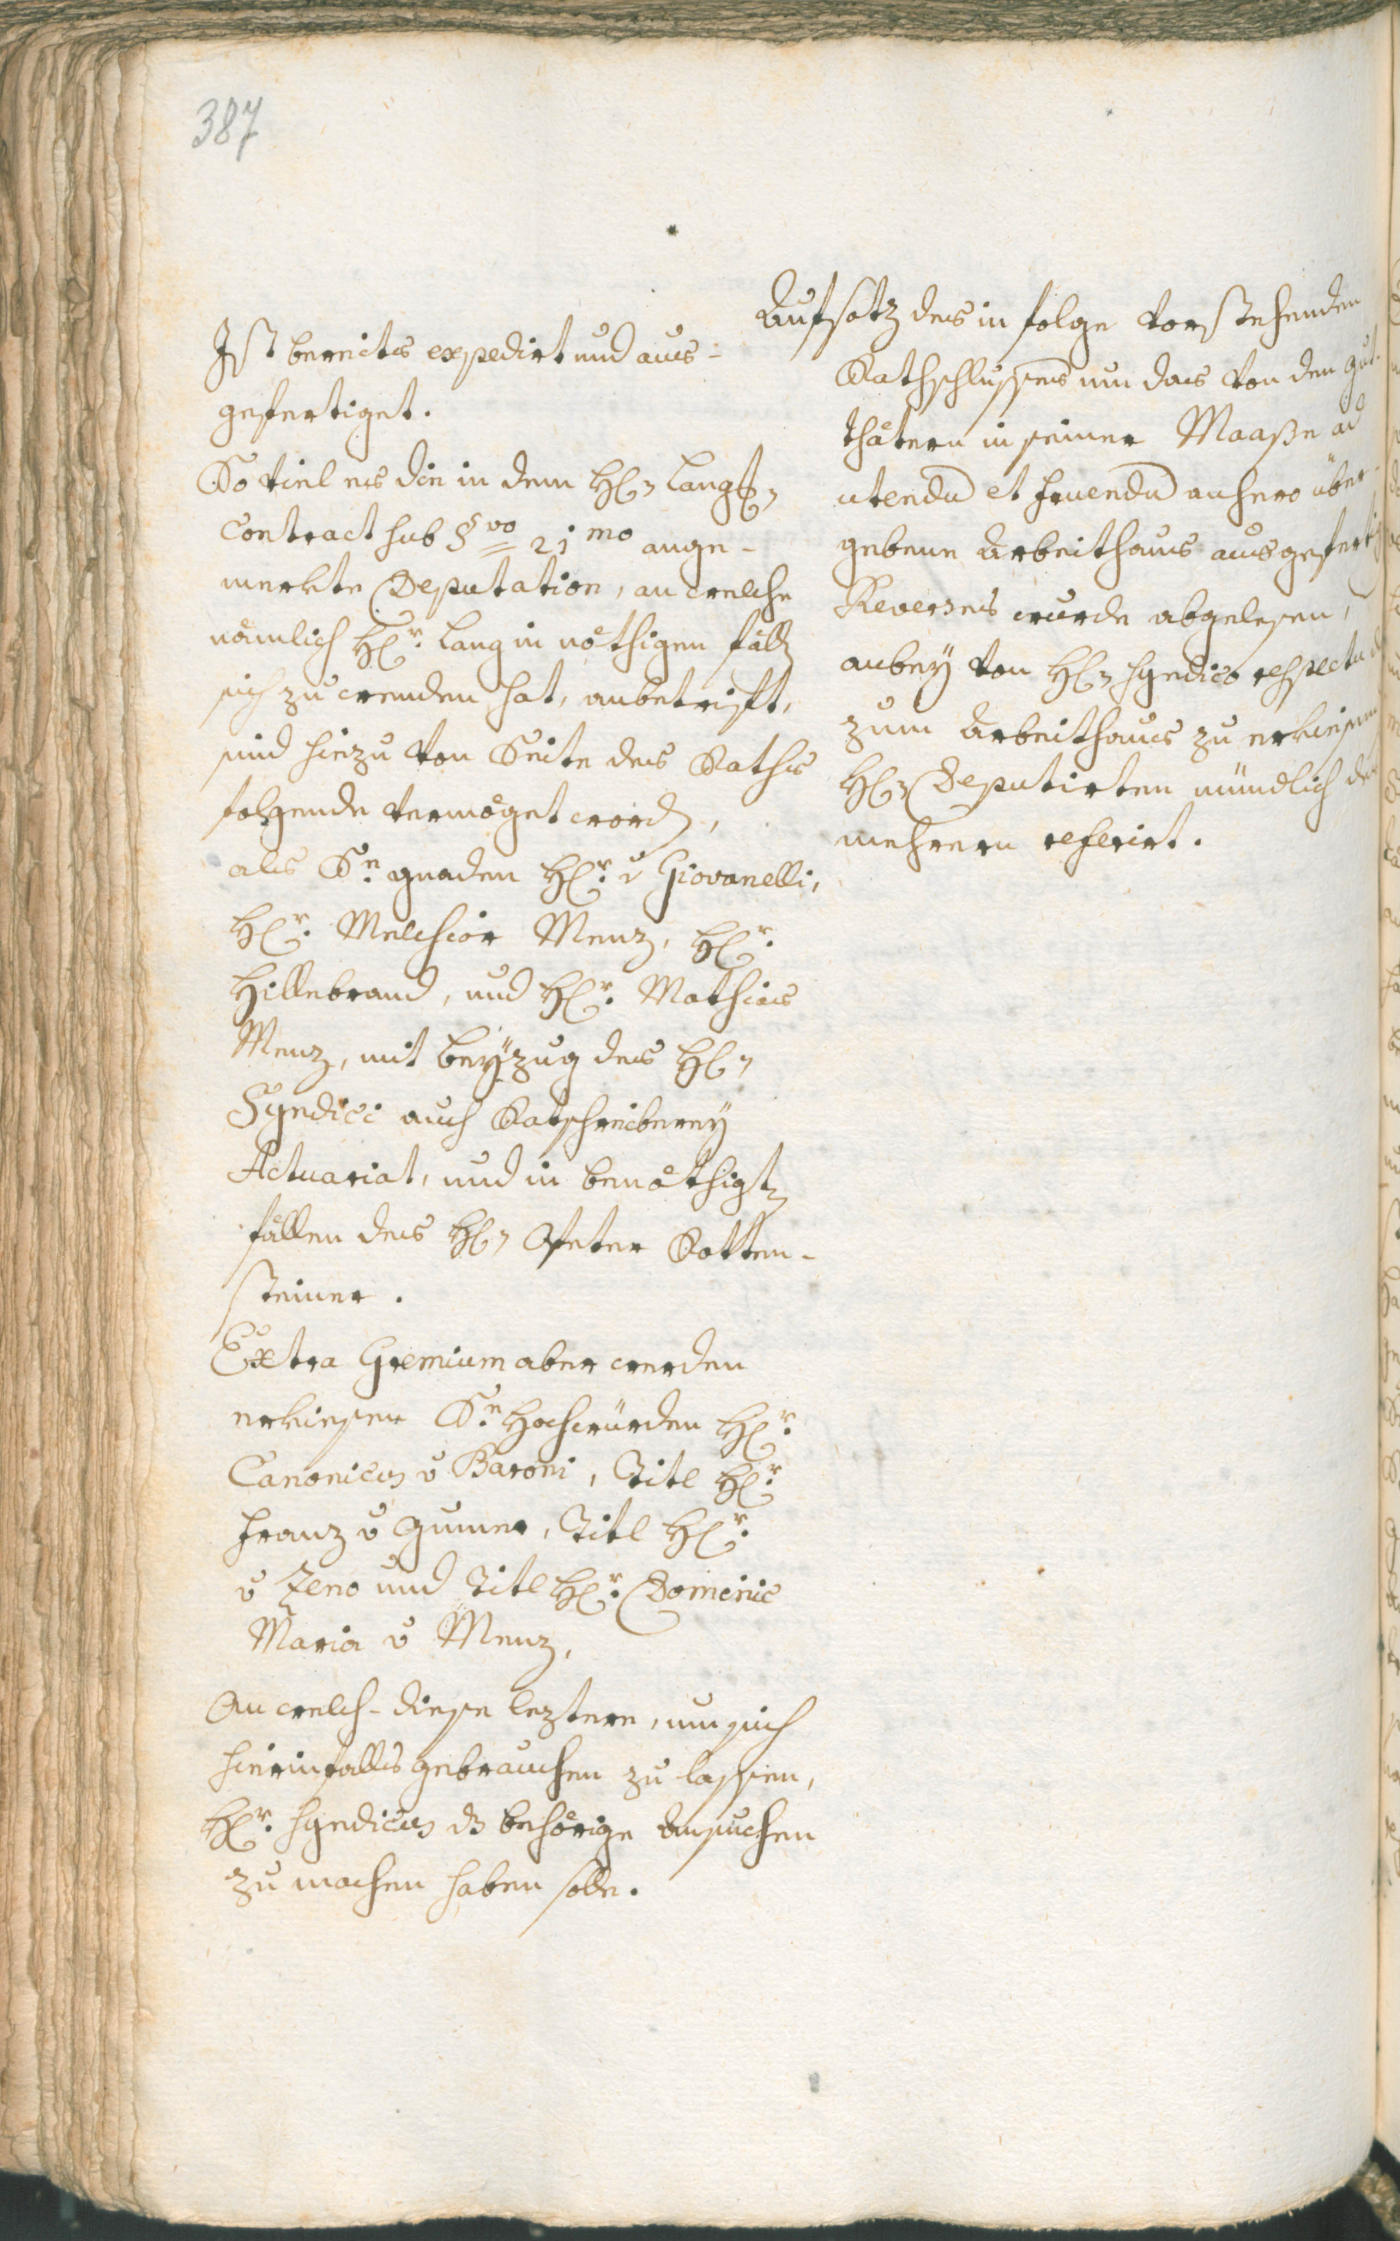 387
Ist bereits expedirt und aus-
gefertiget.
So viel es die in dem H: Langs:
Contract sub §vo 21mo ange-
merkte Deputation, an welche
nämlich H:r Lang in nöthigen fäll
sich zu wenden hat, anbetrifft,
sind hiezu von Seite des Raths
folgende vermöget word,
als S:e gnaden H:r v Giovanelli,
H:r Melchior Menz, H:r
Hillebrand, und H:r Mathias
Menz, mit beÿzug des H:
Syndici auch Ratschreibereÿ
Actuariat, und in benöthigt
fällen des H: Peter Rotten-
steiner.
Extra Gremium aber werden
erkiesen S:e Hochwürden H:r
Canonicus v Baroni, Titl H:r
Franz v Gumer, Titl H:r
v Zeno und Titl H:r Dominic
Maria v Menz,
An welch-diese leztere, um sich
hierinfalls gebrauchen zu lassen,
H:r Syndicus ds behörige Ansuchen
zu machen haben solle.
Aufsatz des in folge vorstehenden
Rathschlusses um das von den gut-
thätern in seiner Maaße ad
utendu et fruendu anhero über-
gebene Arbeithaus ausgeferti
Reverses wurde abgelesen,
anbeÿ von H: Syndico respectu d
zum Arbeithaus zu erkiesen
H: Deputirten mündlich des
mehrern referirt.